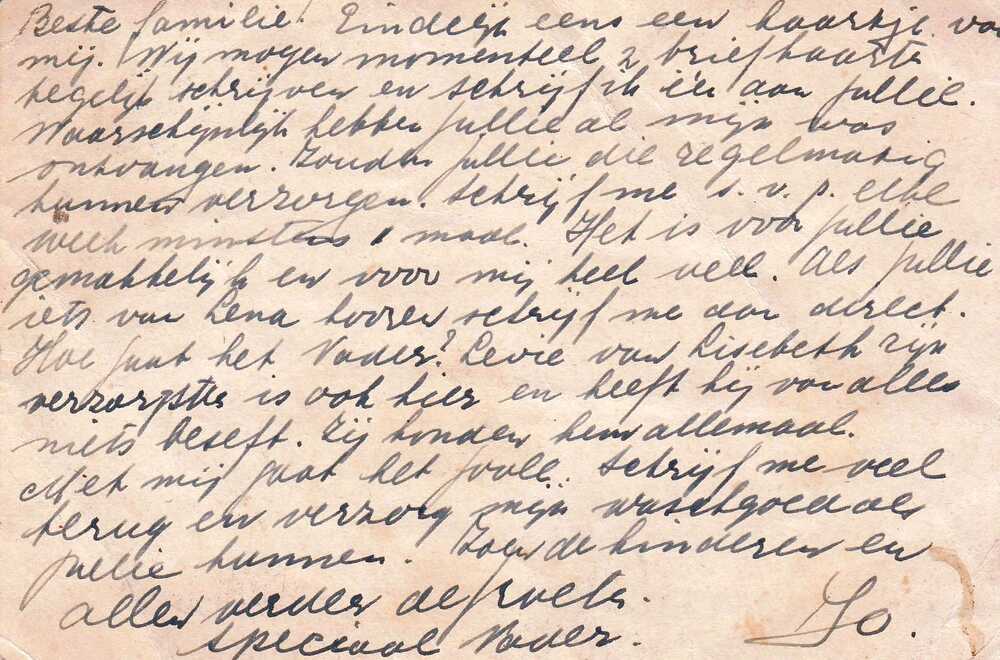 Beste familie! Eindelijk eens een kaartje van
mij. Wij mogen momenteel 2 briefkaarte
tegelijk schrijven en schrijf ik één aan jullie.
Waarschijnlijk hebben jullie al mijn was
ontvangen. Zouden jullie die regelmatig
kunnen verzorgen. Schrijf me s.v.p. elke
week minstens 1 maal. Het is voor jullie
gemakkelijk en voor mij heel veel. Als jullie
iets van Lena hooren schrijf me dan direct.
Hoe gaat het Vader? Levie van Lisebeth zijn
verzorgster is ook hier en heeft hij van alles
niets beseft. Zij honden hem allemaal.
Met mij gaat het goed. Schrijf me veel
terug en verzorg mijn waschgoed als
jullie kunnen. Zoen de kinderen en
allen verder de groeten.
speciaal Vader. Jo.